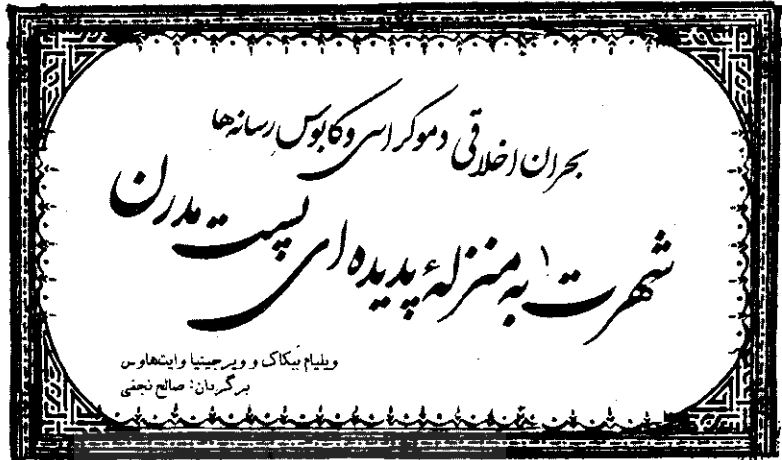 بحران اخلاقی دموکراسی و کابوس رسانه‌ها
شهرت۱ به منزلهٔ پدیده‌ای پست مدرن
ویلیام بیکاک و ویرجینیا وایتهاوس
برگردان: صالح نجفی